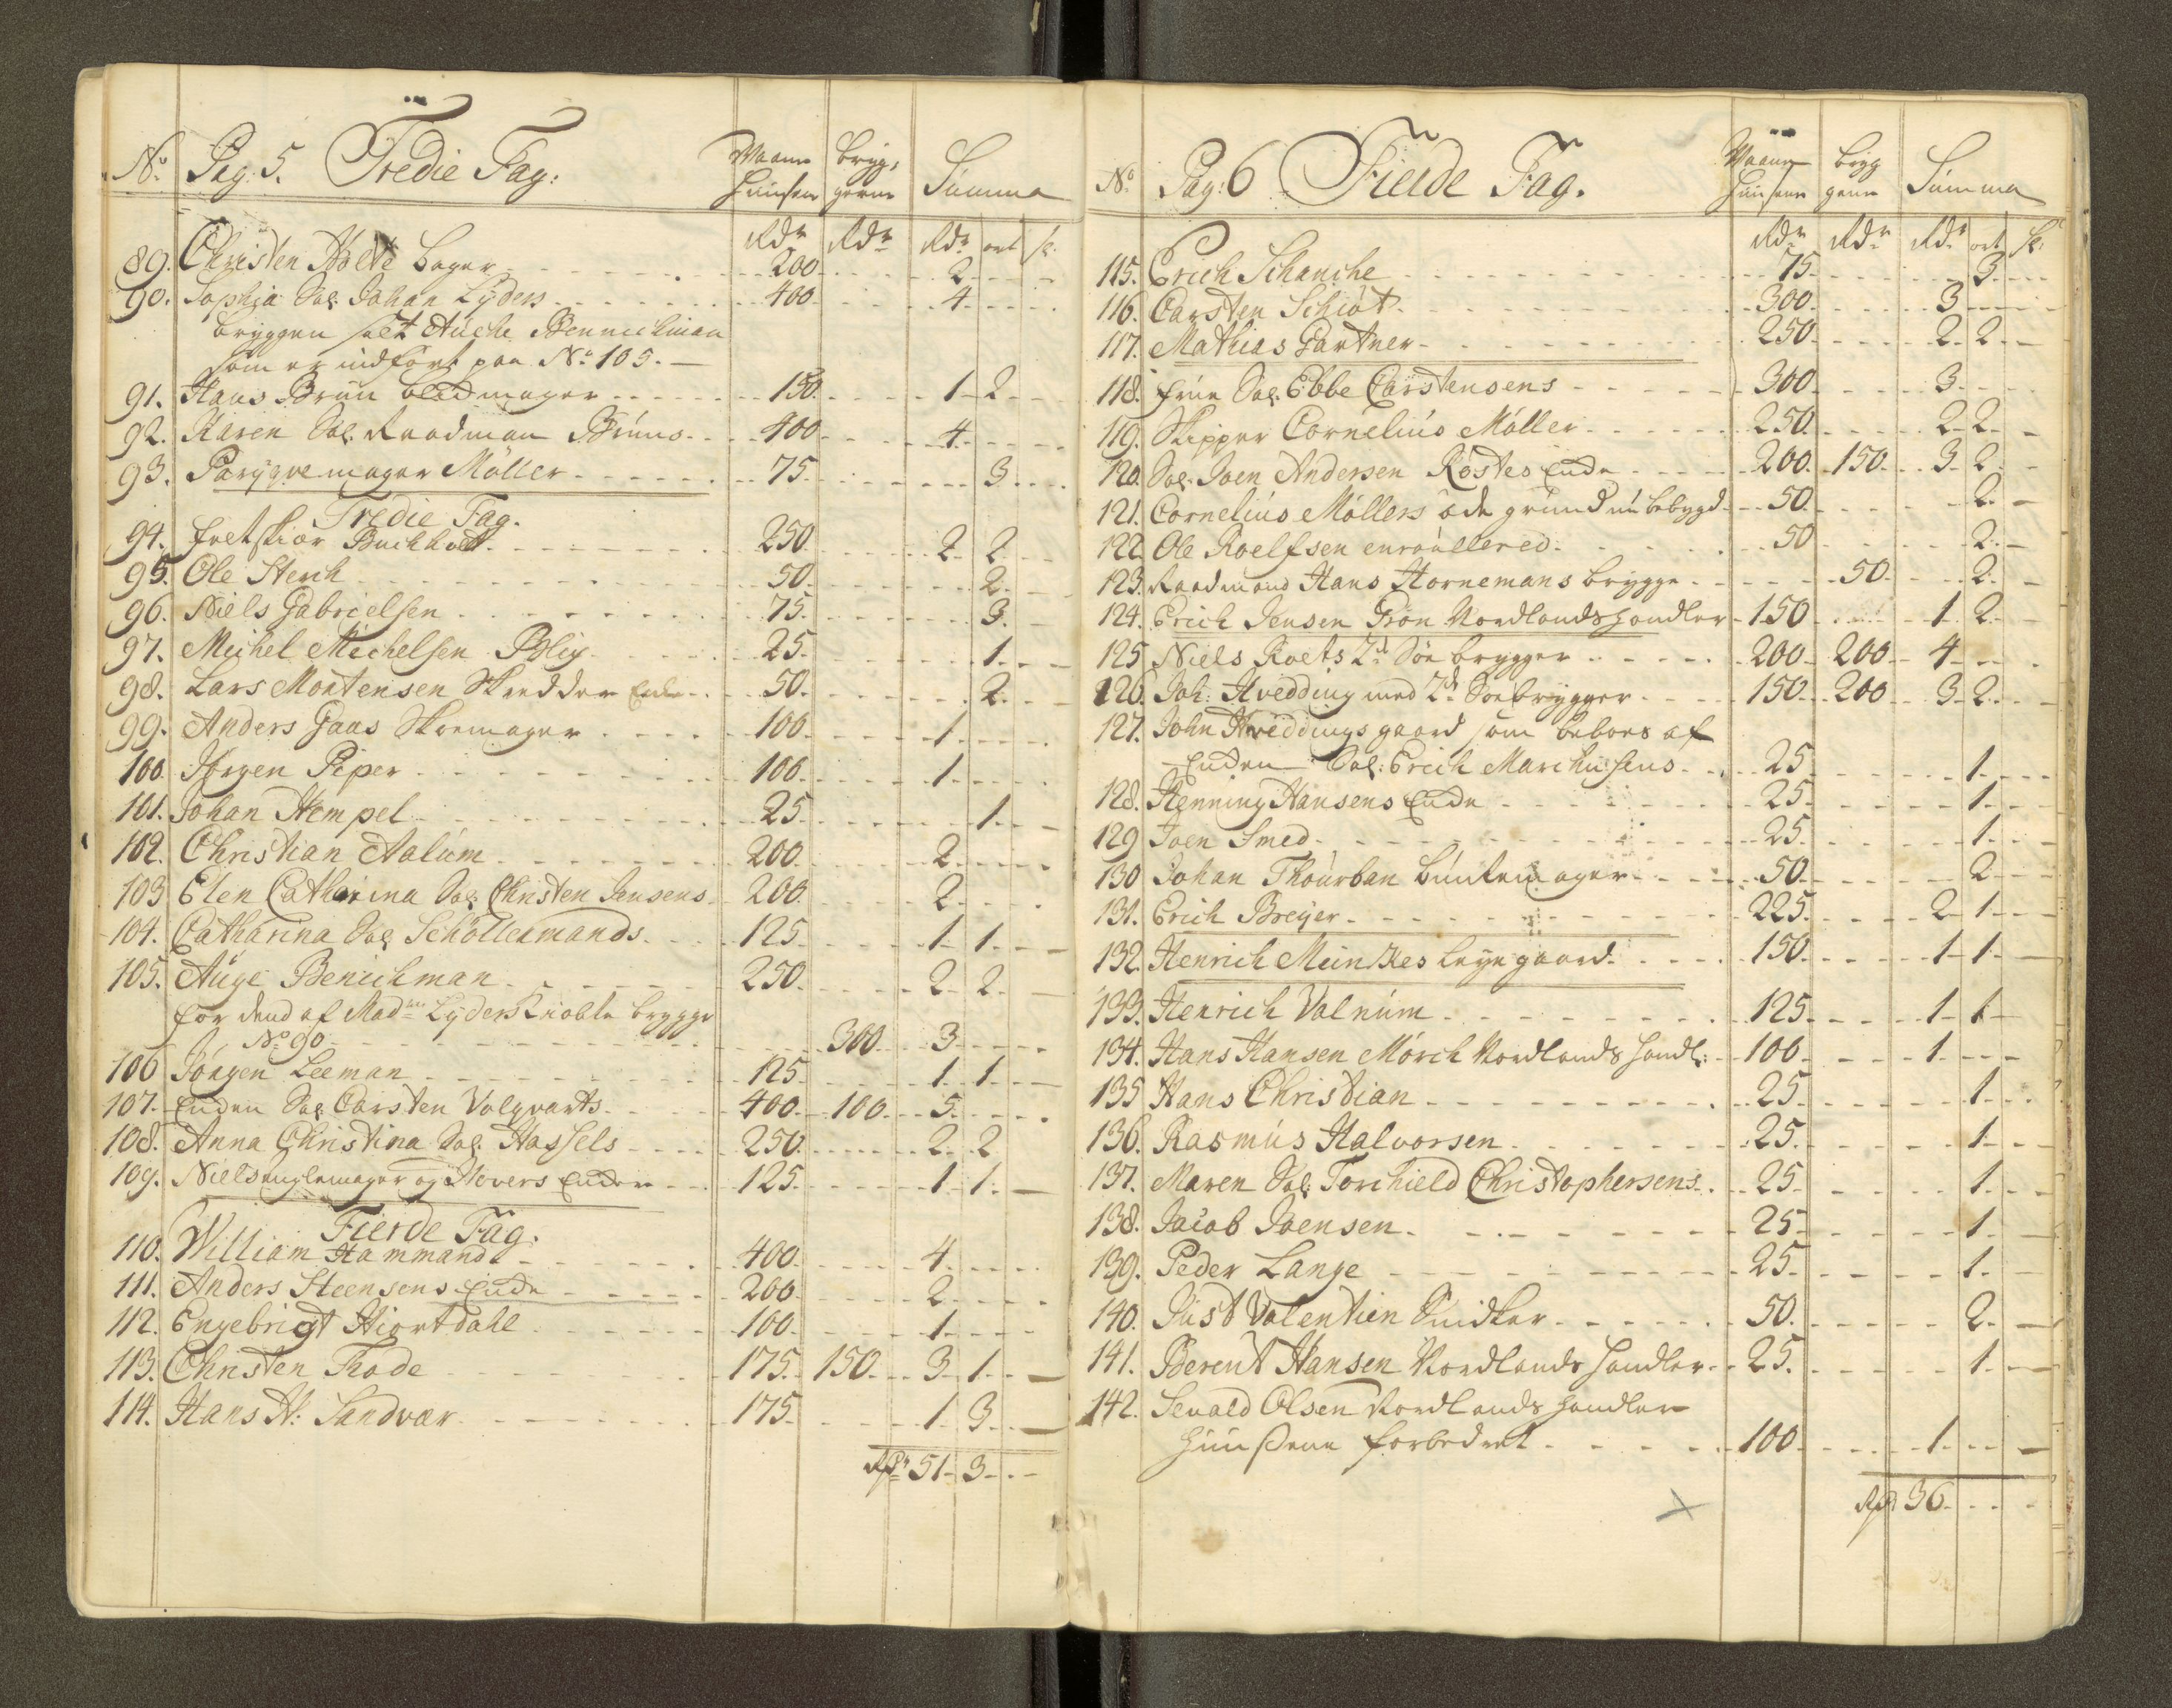 No. Pag: 5. Tredie Fag: Vaane Huusene Bryggerne Summa
Rdr Rdr Rdr ort sk:
89. Christen Holte bager 200 2
90. Sophia Sal. Johan Lÿders 400 4
bryggen salt Auche Bennichman
som er indført paa No 105.
91. Hans Bruun bladmager 150 1 2
92. Karen Sal. Raadman Bruuns 400 4
93. Paryqvemager Möller 75 3
Tredie Fag.
94. Buchholt 250 2 2
95. Ole Sterch 50 2
96. Niels Gabrielsen 75 3
97. Michel Michelsen Blix 25 1
98. Lars Mortensen Skredder Encke 50 2
99. Anders Gaas Skoemager 100 1
100 Jørgen Piper 100 1
101. Johan Hempel 25 1
102. Christian Aalum 200 2
103 Elen Catharina Sal. Christen Jensens 200 2
104. Catharina Sal. Schöllermands 125 1 1
105. Auge Benichman 250 2 2
for dend af Mad. Lÿders Kiøbte brygge
No 90 300 3
106 Jörgen Leeman 125 1 1
107. Encken Sal. Carsten Volqvarts 400 100 5
108. Anna Christina Sal. Hassels 250 2 2
109. Niels englemager og Hovers Encker 125 1 1
Fierde Fag.
110. William Hammand 400 4
111. Anders Steensens Encke 200 2
112. Engebrigt Hiortdahl 100 1
113. Christen Thode 175 150 3 1
114. Hans N: Sandvær 175 1 3
Rdr 51 3
No. Pag: 6 Fierde Fag. Vaane Huusene Bryggene Summa
Rdr Rdr Rdr ort sk:
115. Erich Schanche 75 3
116. Carsten Schiöt 300 3
117. Mathias Gartner 250 2 2
118. Frue Sal. Ebbe Carstensens 300 3
119. Skipper Cornelius Möller 250 2 2
120. Sal. Joen Andersen Röstes Encke 200 150 3 2
121. Cornelius Möllers øde grund nu bebygd 50 2
122 Ole Roelfsen enroullered 50 2
123. Raadmand Hans Hornemans brygge 50 2
124. Erich Jensen Grön Nordlandshandler 150 1 2
125 Niels Roets 2de Söe brygger 200 200 4
126. Joh: Hvedding med 2de Söebrygger 150 200 3 2
127. John Hveddings gaard som beboes af
Encken Sal: Erich Marchusens 25 1
128. Henning Hansens Encke 25 1
129 Joen Smed 25 1
130 Johan Thourban Buntemager 50 2
131. Erich Breyer 225 2 1
132. Henrich Meinkes leyegaard 150 1 1
133. Henrich Valnum 125 1 1
134. Hans Hansen Mörch Nordlandshandl: 100 1
135 Hans Christian 25 1
136. Rasmus Halvorsen 25 1
137. Maren Sal. Torchield Christophersens 25 1
138. Jacob Joensen 25 1
139. Peder Lange 25 1
140. Just Valentien Snidker 50 2
141. Berent Hansen Nordlandshandler 25 1
142. Sevald Olsen Nordlandshandler
Huusene forbedret 100 1
Rdr 36